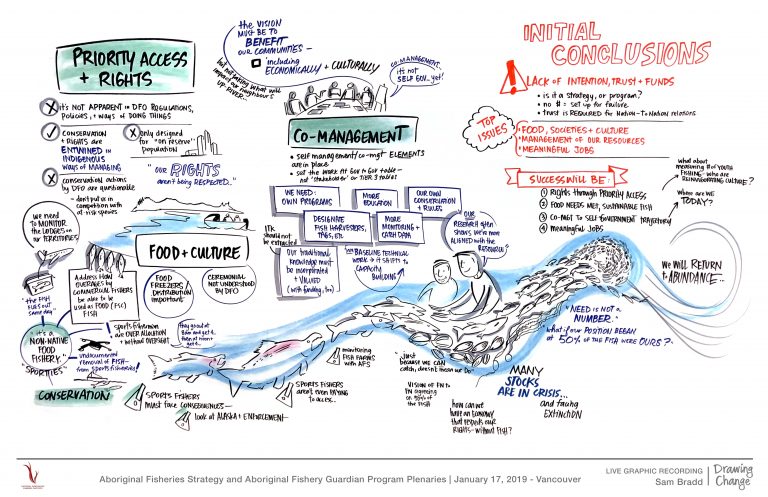 PRIORITY ACCESS
+ RIGHTS
it's NOT APPARENT in DFO REGULATIONS,
POLICIES, + WAYS of DOING THINGS
CONSERVATION
+ RIGHTS are
ENTWINED in
INDIGENOUS
WAYS of MANAGING
only designed
for "on reserve"
population
conservation actions
by DFO are questionable
- don't put us in
competition with
at-risk species
"OUR RIGHTS
aren't being RESPECTED."
the VISION
MUST BE TO
BENEFIT
OUR COMMUNITIES -
including
ECONOMICALLY + CULTURALLY
but not taking what will
impact our neighbours
UP RIVER...
CO-MANAGEMENT..
it's not
SELF GOV... yet!
CO-MANAGEMENT
• self management/co-mgt ELEMENTS
are in place
• not "stakeholder" or TIER 3 tables
WE NEED:
OWN PROGRAMS
MORE
EDUCATION
OUR OWN
CONSERVATION
+ RULES
DESIGNATE
FISH HARVESTERS,
TAGS, ETC
MORE
MONITORING +
CATCH DATA
ITK
should not
be extracted
Our traditional
knowledge must
be incorporated
+ VALUED
(with funding, too)
BASELINE TECHNICAL
WORK → it SHIFTS to
CAPACITY
BUILDING
OUR
RESEARCH often
shows we're more
ALIGNED with the
RESOURCE
INITIAL
CONCLUSIONS
LACK OF INTENTION, TRUST + FUNDS
• is it a strategy, or program?
• no # = set up for failure.
• trust is REQUIRED for NATION-TO NATION relations
TOP
ISSUES
• FOOD, SOCIETIES + CULTURE
• MANAGEMENT OF OUR RESOURCES
• MEANINGFUL JOBS
SUCCESS WILL BE:
① Rights through PRIORITY ACCESS
② FOOD NEEDS MET, SUSTAINABLE FISH
③ CO-MGT TO SELF GOVERNMENT TRAJECTORY
④ meaningful JOBS
what about
measuring # of YOUTH
FISHING - who are
REINVIGORATING CULTURE?
where are WE
TODAY?
WE WILL RETURN
to ABUNDANCE...
we need
TO MONITOR
the LODGES on
our TERRITORIES
"the FISH
FLIES OUT
same day"
FOOD + CULTURE
Address how
OVERAGES by
COMMERCIAL FISHERS
be able to be
used as FOOD (FSC)
FISH
FOOD
FREEZERS/
DISTRIBUTION
important
CEREMONIAL
NOT UNDERSTOOD
by DFO
"it's a
NON-NATIVE
FOOD
FISHERY."
"SPORTIES"
sports fishermen
are OVER ALLOCATION
+ without OVERSIGHT
undocumented
removal of FISH
from sports fisheries!
CONSERVATION
SPORTS FISHERS
must face CONSEQUENCES
look at ALASKA + ENFORCEMENT
SPORTS FISHERS
aren't even PAYING
TO ACCESS..
monitoring
FISH FARMS
with AFS
..just
because we CAN
catch, doesn't mean we Do
VISION OF FN to
FN agreeing
on 50% of
the FISH
how can we
have an ECONOMY
that respects our
RIGHTS - without FISH?
MANY
STOCKS
ARE IN CRISIS...
and facing
EXTINCTION
"NEED IS NOT A
NUMBER."
what if our POSITION BEGAN
at 50% OF THE FISH WERE OURS?
Aboriginal Fisheries Strategy and Aboriginal Fishery Guardian Program Plenaries | January 17, 2019 - Vancouver
LIVE GRAPHIC RECORDING
Sam Bradd
Drawing
Change